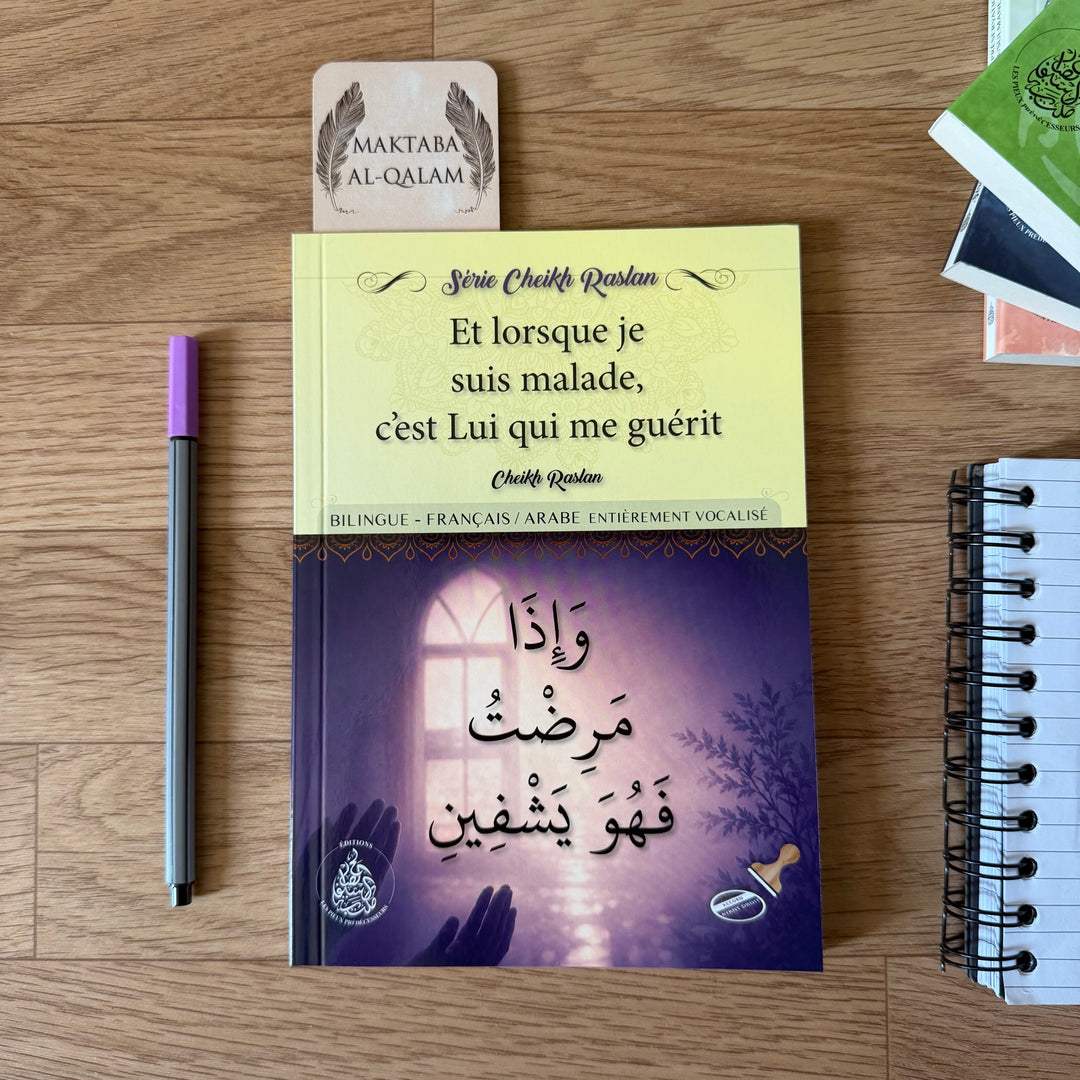 MAKTABA
AL-QALAM
Série Cheikh Raslan
Et lorsque je
suis malade,
c'est Lui qui me guérit
Cheikh Raslan
BILINGUE - FRANÇAIS / ARABE ENTIÈREMENT VOCALISÉ
وَإِذَا
مَرِضْتُ
فَهُوَ يَشْفِينِ
ÉDITIONS
LES PIEUX PRÉDÉCESSEURS
LES PIEUX PRÉDÉCESSEURS